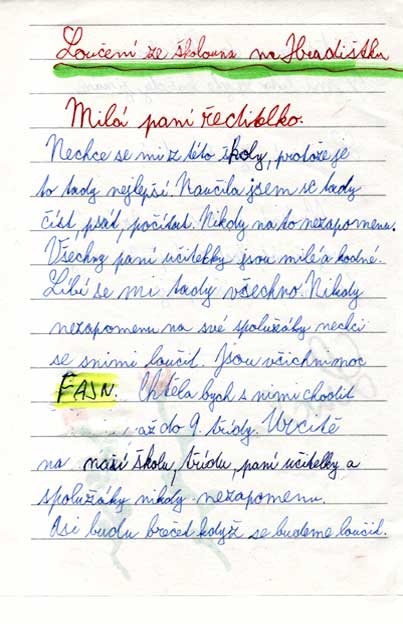 Loučení ze školouna na Hradištku
Milá paní ředitelko.
Nechce se mi z této školy, protože je
to tady nejlepší. Naučila jsem se tady
číst, psát, počítat. Nikdy na to nezapomenu.
Všechny paní učitelky jsou milé a hodné.
Líbí se mi tady všechno. Nikdy
nezapomenu na své spolužáky nechci
se snimi loučit. Jsou všichni moc
FAJN. Chtěla bych s nimi chodit
až do 9. třídy. Určitě
na naší školu, třídu, paní učitelky a
spolužáky nikdy nezapomenu.
Asi budu brečed když se budeme loučit.